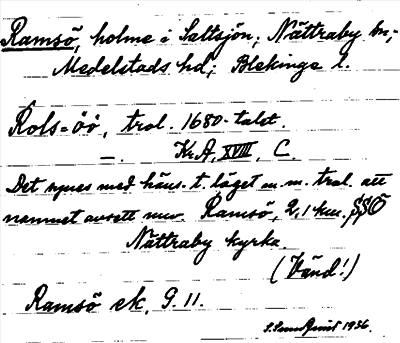 Ramsö, holme i Saltsjön, Nättraby sn,
Medelstads hd, Blekinge l.
Rols=öö, trol. 1680-talet.
—. Kr.A. XVIII, C.
Det synes med häns. t. läget m. m. trol. att
namnet avsett nuv. Ramsö, 2,1 km. SSÖ
Nättraby kyrka.
(Vänd!)
Ramsö ek. 9.11.
1936.